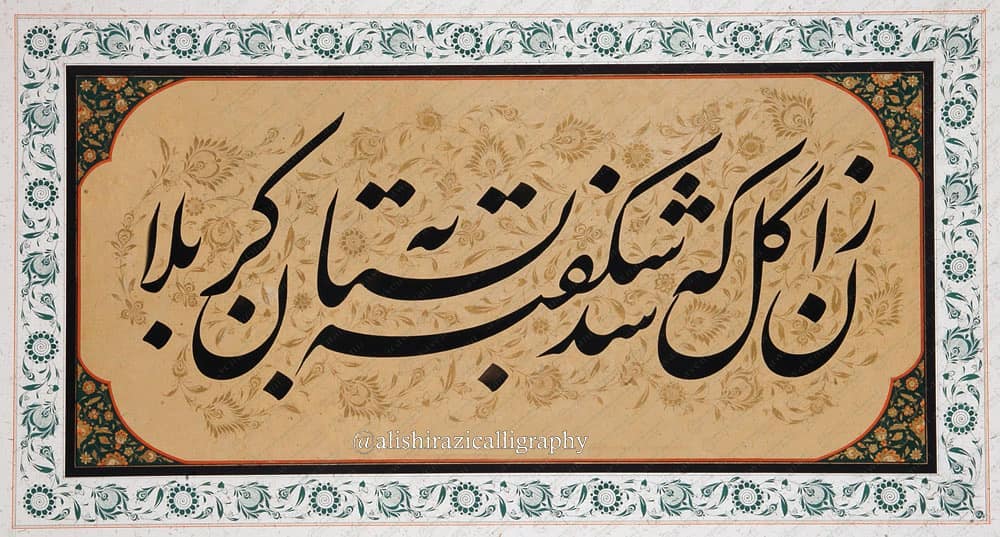 زان گل که شد شکفته به بستان کربلا
@alishirazicalligraphy